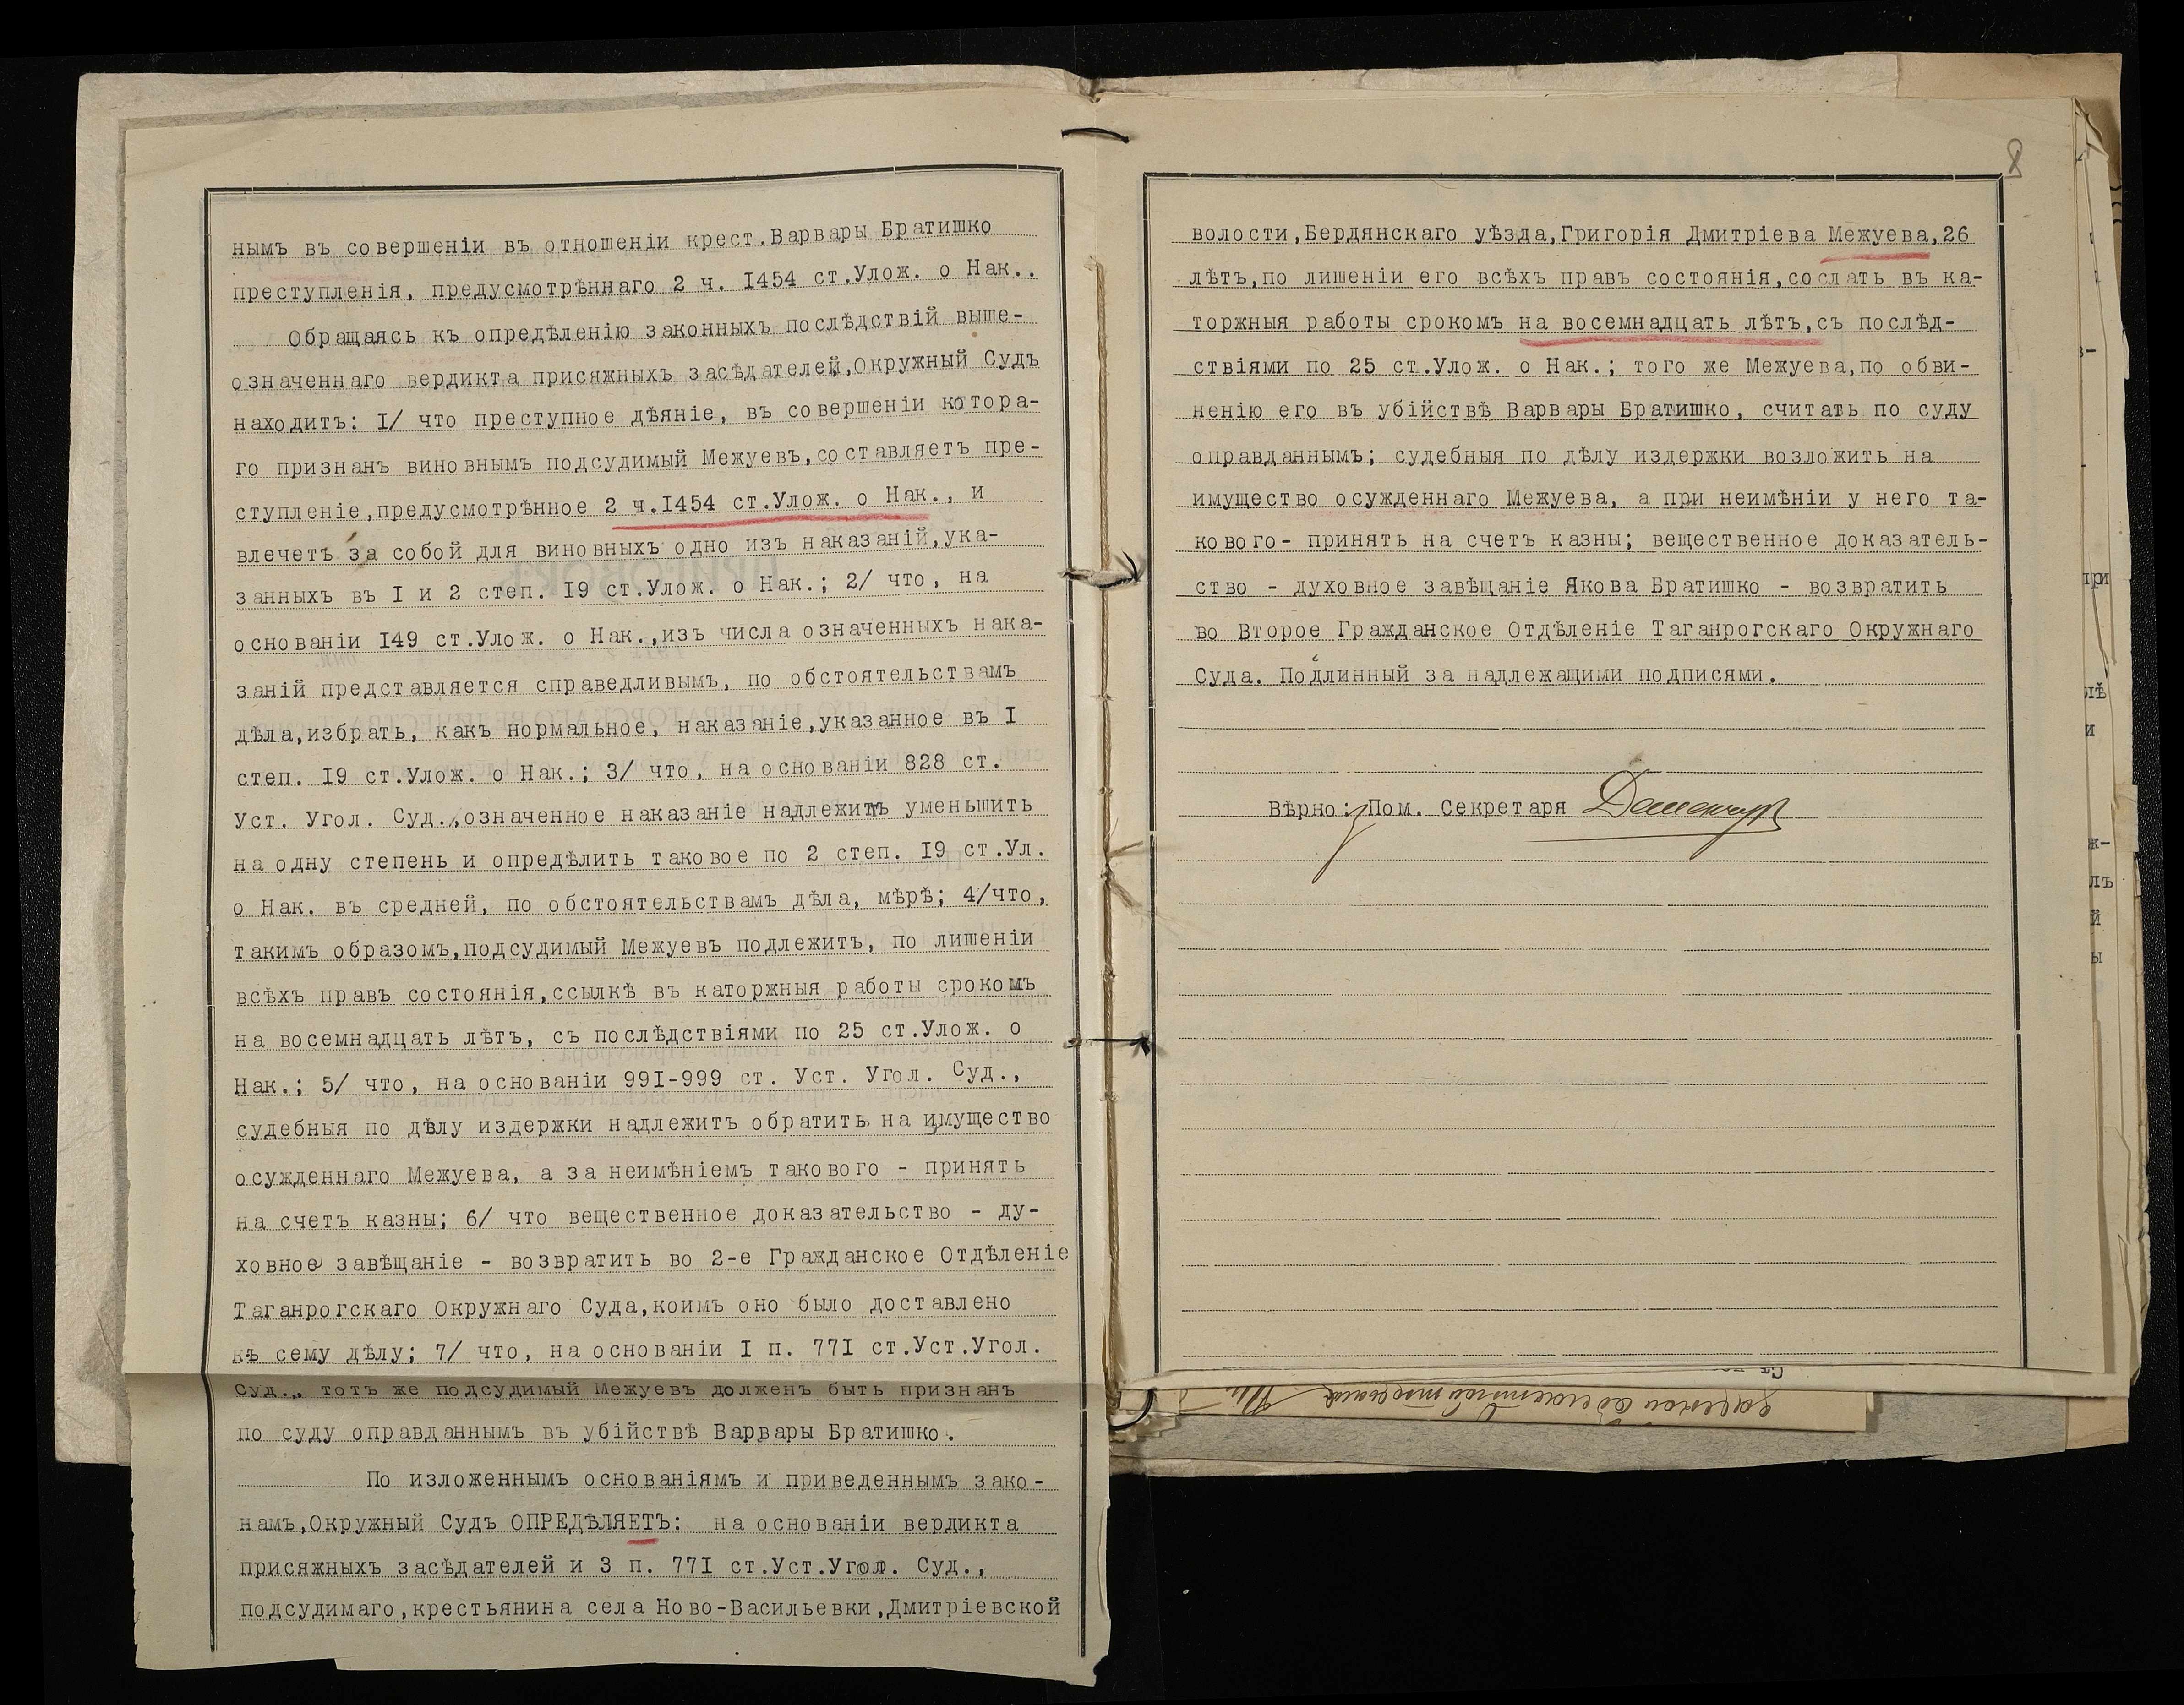 нымъ въ совершеніи въ отношеніи крест.Варвары Братишко
преступленія, предусмотрѣннаго 2 ч. I454 ст.Улож. о Нак..
Обращаясь къ опредѣленію законныхъ послѣдствій выше-
означеннаго вердикта присяжныхъ засѣдателей,Окружный Судъ
находитъ: I/ что преступное дѣяніе, въ совершеніи котора-
го признанъ виновнымъ подсудимый Межуевъ,составляетъ пре-
ступленіе,предусмотрѣнное 2 ч.I454 ст.Улож. о Нак., и
влечетъ за собой для виновныхъ одно изъ наказаній,ука-
занныхъ въ I и 2 степ. I9 ст.Улож. о Нак.; 2/ что, на
основаніи I49 ст.Улож. о Нак.,изъ числа означенныхъ нака-
заній представляется справедливымъ, по обстоятельствамъ
дѣла,избрать, какъ нормальное, наказаніе,указанное въ I
степ. I9 ст.Улож. о Нак.; 3/ что, на основаніи 828 ст.
Уст. Угол. Суд.,означенное наказаніе надлежитъ уменьшить
на одну степень и опредѣлить таковое по 2 степ. I9 ст.Ул.
о Нак. въ средней, по обстоятельствамъ дѣла, мѣрѣ; 4/что,
такимъ образомъ,подсудимый Межуевъ подлежитъ, по лишеніи
всѣхъ правъ состоянія,ссылкѣ въ каторжныя работы срокомъ
на восемнадцать лѣтъ, съ послѣдствіями по 25 ст.Улож. о
Нак.; 5/ что, на основаніи 99I-999 ст. Уст. Угол. Суд.,
судебныя по дѣлу издержки надлежитъ обратить на имущество
осужденнаго Межуева, а за неимѣніемъ такового - принять
на счетъ казны; 6/ что вещественное доказательство - ду-
ховное завѣщаніе - возвратить во 2-е Гражданское Отдѣленіе
Таганрогскаго Окружнаго Суда,коимъ оно было доставлено
къ сему дѣлу; 7/ что, на основаніи I п. 77I ст.Уст.Угол.
Суд., тотъ же подсудимый Межуевъ долженъ быть признанъ
по суду оправданнымъ въ убійствѣ Варвары Братишко.
По изложеннымъ основаніямъ и приведеннымъ зако-
намъ,Окружный Судъ ОПРЕДѢЛЯЕТЪ: на основаніи вердикта
присяжныхъ засѣдателей и 3 п. 77I ст.Уст.Угол. Суд.,
подсудимаго,крестьянина села Ново-Васильевки,Дмитріевской
8
волости,Бердянскаго уѣзда,Григорія Дмитріева Межуева,26
лѣтъ,по лишеніи его всѣхъ правъ состоянія,сослать въ ка-
торжныя работы срокомъ на восемнадцать лѣтъ,съ послѣд-
ствіями по 25 ст.Улож. о Нак.; того же Межуева,по обви-
ненію его въ убійствѣ Варвары Братишко, считать по суду
оправданнымъ; судебныя по дѣлу издержки возложить на
имущество осужденнаго Межуева, а при неимѣніи у него та-
кового- принять на счетъ казны; вещественное доказатель-
ство - духовное завѣщаніе Якова Братишко - возвратить
во Второе Гражданское Отдѣленіе Таганрогскаго Окружнаго
Суда. Подлинный за надлежащими подписями.
Вѣрно: Пом. Секретаря